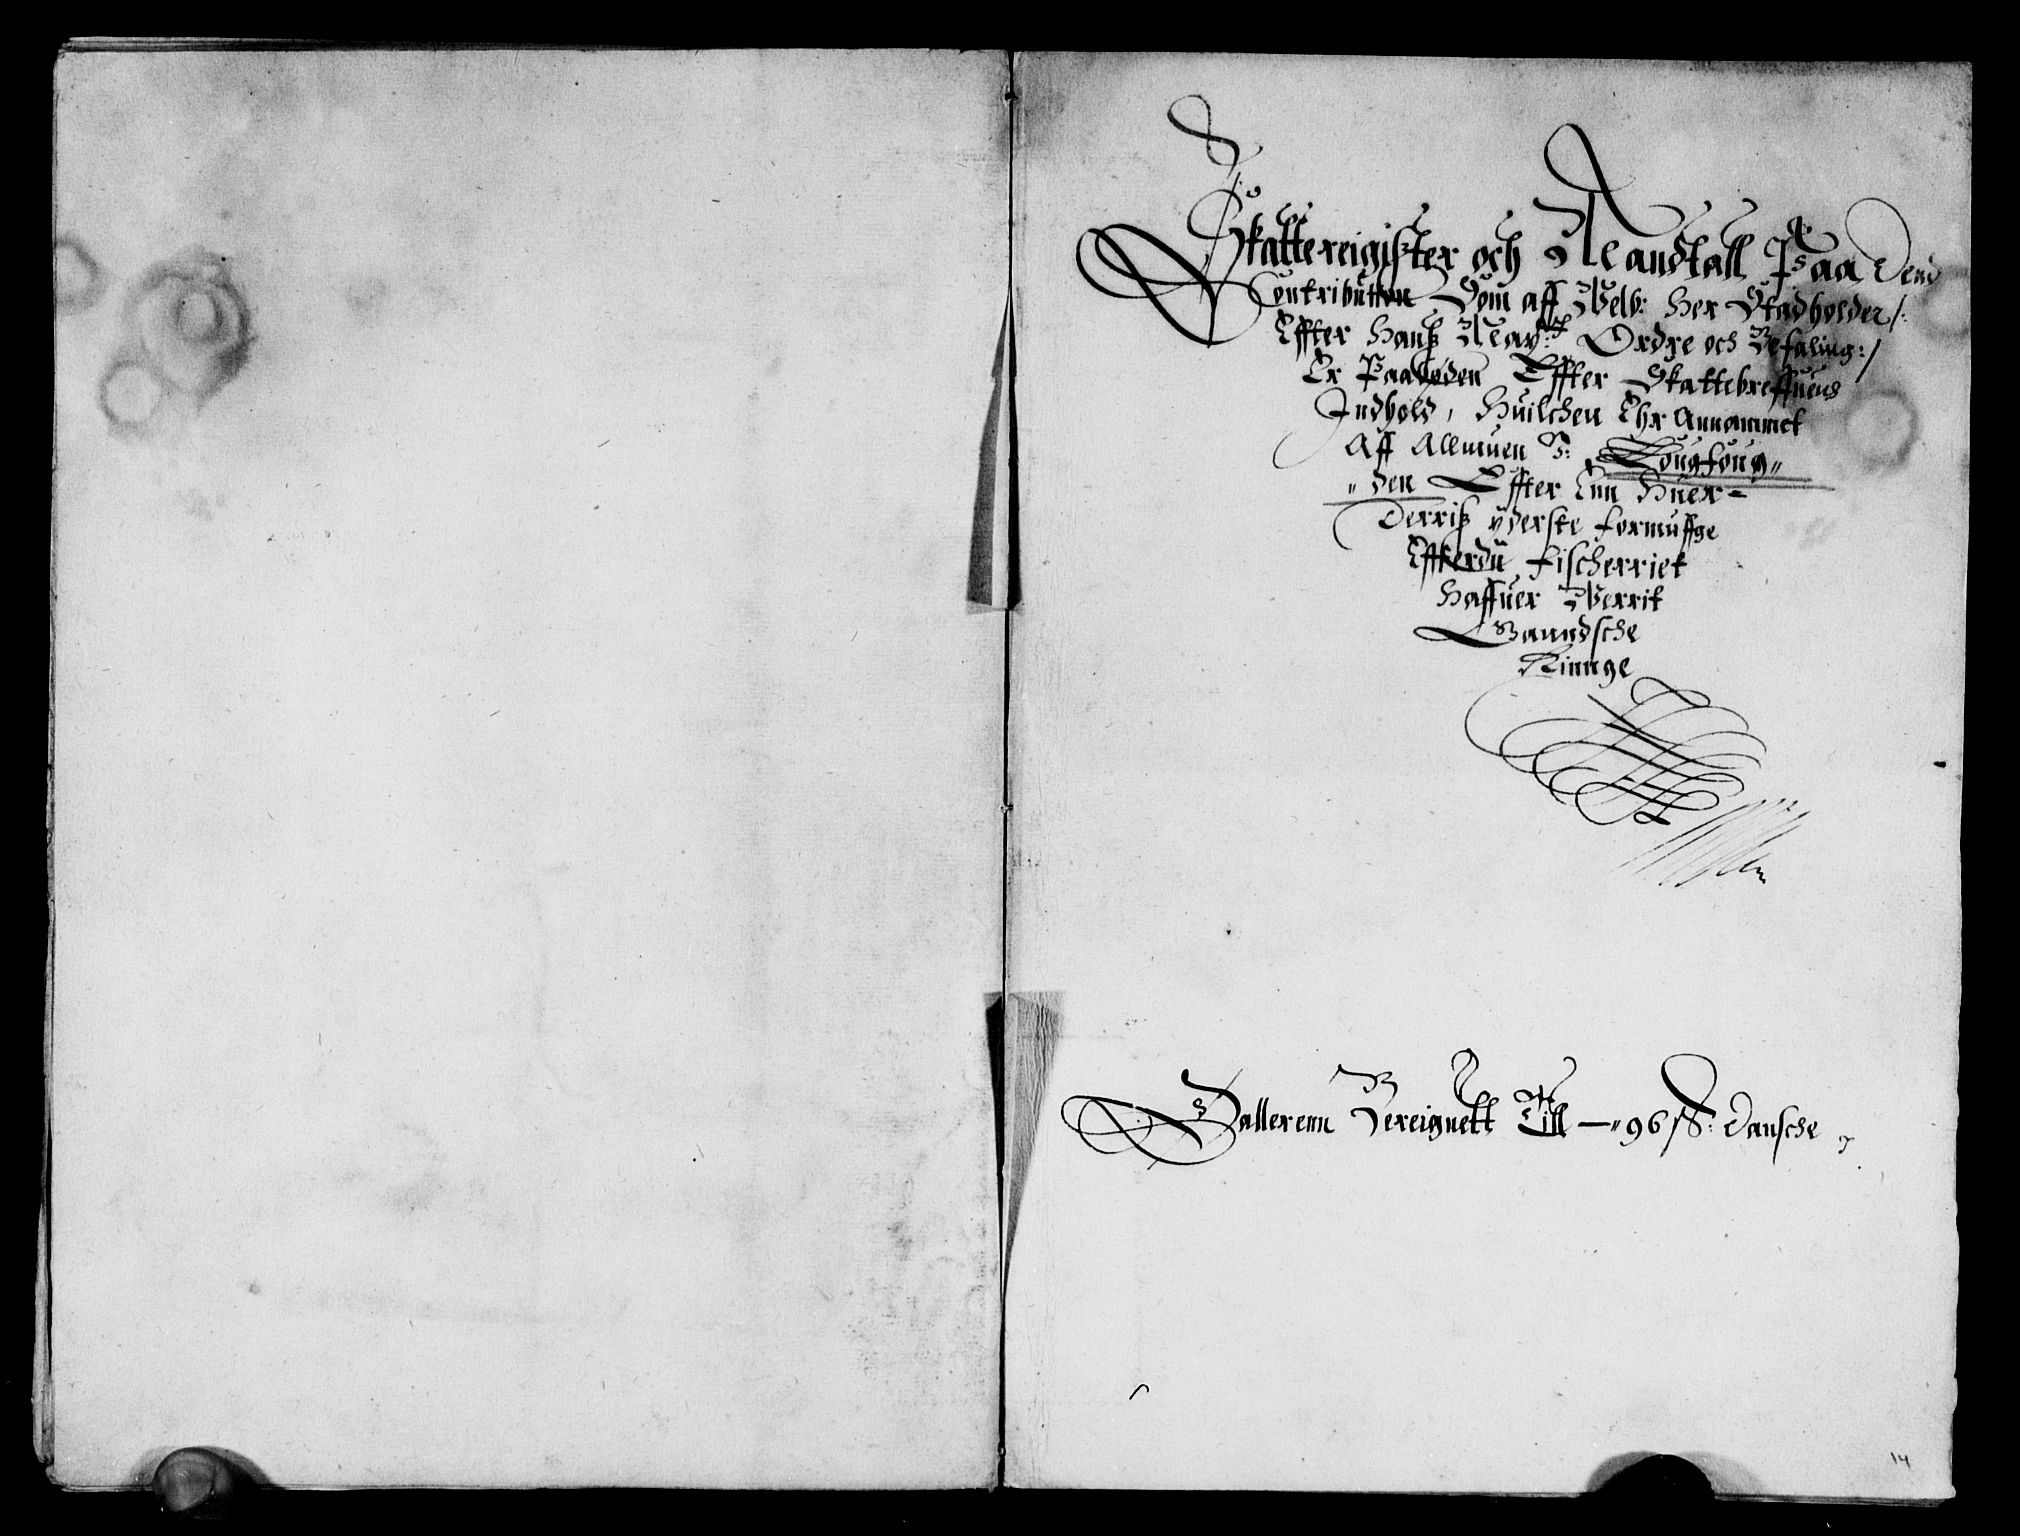 Skattereigister och Mandtall Paa Dend
Contribution Som aff Welb: Her Stadholder /:
Effter Hanß May:tz Ordre och Befaling: /
Er Paabøden Effter Skattebreffuens
Indhold, Huilchen Ehr Annammet
Aff Allmuen
den Effter Enn Huer=
Derriß yderste formuffge
Effterdii fischerriet
Haffuer Werrit
Ganndsche
Rinnge
Dallerenn Bereignett Till — 96 ß: Dansche
14